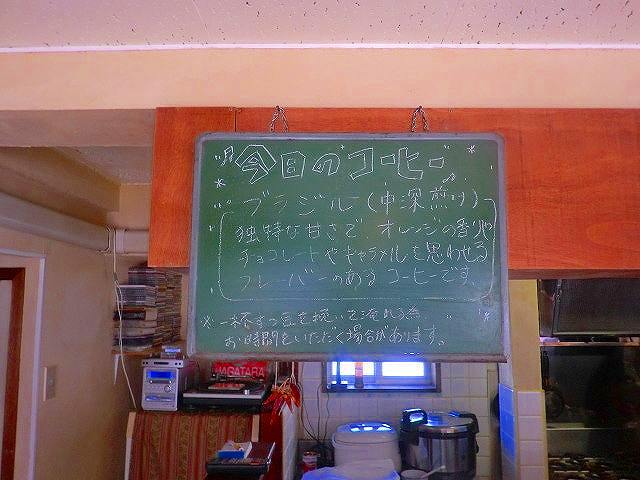 今日のコーヒー
ブラジル(中深煎り)
独特な甘さで オレンジの香りや
チョコレートやキャラメルを思わせる
フレーバーのあるコーヒーです。
※一杯ずつ豆を挽いて淹れる為
お時間をいただく場合があります。
HAGATARA